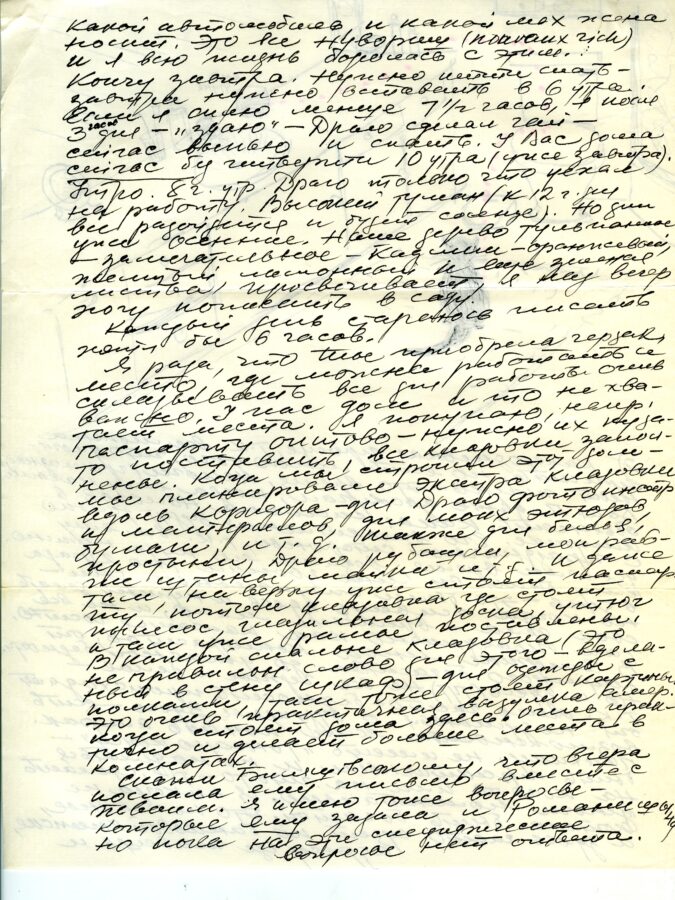 какой автомобиль и какой мех жена
носит. Это все нувориши (nouveaux rich)
и я всю жизнь боролась с этим.
Кончу завтра. Нужно идти спать –
завтра нужно вставать в 6 утра.
Если я сплю меньше 7 1/2 часов, я после
3 часов дня – „сдаю" – Драго сделал чай –
сейчас выпью и спать. У Вас дома
сейчас без четверти 10 утра (уже завтра).
Утро. 8 ч. утр. Драго только что уехал
на работу. Высокий туман (к 12 ч. дня
все разойдется и будет солнце). Но дни
уже осенние. Наше дерево тульпанное
– замечательное. Кадмий – оранжевый,
желтый лимонный и еще зеленая
листва, просвечивает, я над вечер
хочу пописать в саду.
Каждый день стараюсь писать
хотя бы 6 часов.
Я рада, что ты приобрела чердак,
место, где можно работать и
складывать все для работы. Очень
важно. У нас дом и то не хва-
тает места. Я покупаю, напр.
паспарту оптово – нужно их куда-
то поставить, все кладовки запол-
нены. Когда мы строили этот дом –
мы планировали экстра кладовки
вдоль коридора – для Драго фото инстр.
и материалов, для моих этюдов,
бумаги, и т.д., также для белья,
простыни, Драго рубашки, мои раб-
чие штаны, майки и т.д. и даже
там наверху уже стоит паспар
ту, потом кладовка где стоит
пылесос гладильная доска, утюг
а там уже рамы поставлены.
В каждой спальне кладовка (это
не правильн. слово для этого – вдела-
ный в стену шкаф) – для одежды с
полками, там тоже стоят картины.
Это очень практичная выдумка амер.
когда строят дома здесь. Очень прак-
тично и делает больше места в
комнатах.
Скажи Билятовскому, что вчера
послала ему письмо вместе с
Я имею тоже вопросы –
которые ему задала и Романицы
но пока на эти специфические
вопросы нет ответа.